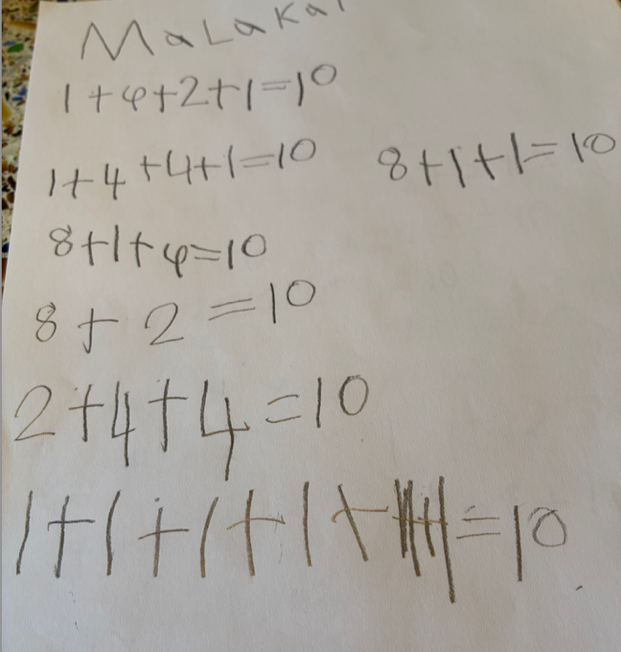 MaLaKaI
1+4+2+1=10
1+4+4+1=10 8+1+1=10
8+1+4=10
8+2=10
2+4+4=10
1+1+1+1+ =10